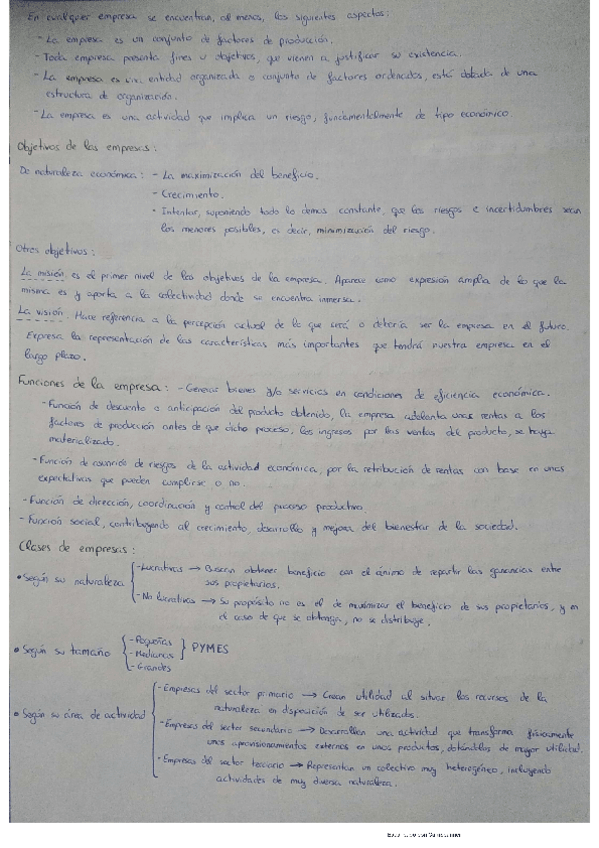 En cualquier empresa se encuentran, al menos, los siguientes aspectos:
- La empresa es un conjunto de factores de producción.
- Toda empresa presenta fines u objetivos, que vienen a justificar su existencia.
- La empresa es una entidad organizada o conjunto de factores ordenados, está dotada de una
estructura de organización.
- La empresa es una actividad que implica un riesgo, fundamentalmente de tipo económico.
Objetivos de las empresas:
De naturaleza económica: - La maximización del beneficio.
- Crecimiento.
- Intentar, suponiendo todo lo demas constante, que los riesgos e incertidumbres sean
los menores posibles, es decir, minimización del riesgo.
Otros objetivos:
La misión, es el primer nivel de los objetivos de la empresa. Aparece como expresión amplia de lo que la
misma es y aporta a la colectividad donde se encuentra inmersa.
La visión. Hace referencia a la percepción actual de lo que será o debería ser la empresa en el futuro.
Expresa la representación de las características más importantes que tendrá nuestra empresa en el
largo plazo.
Funciones de la empresa: - Generar bienes y/o servicios en condiciones de eficiencia económica.
- Función de descuento o anticipación del producto obtenido, la empresa adelanta unas rentas a los
factores de producción antes de que dicho proceso, los ingresos por las ventas del producto, se haya
materializado.
- Función de asunción de riesgos de la actividad económica, por la retribución de rentas con base en unas
expectativas que pueden cumplirse o no.
- Función de dirección, coordinación y control del proceso productivo.
- Función social, contribuyendo al crecimiento, desarrollo y mejora del bienestar de la sociedad.
Clases de empresas:
• Según su naturaleza { - Lucrativas → Buscan obtener beneficio con el ánimo de repartir las ganancias entre
sus propietarios.
- No lucrativas → Su propósito no es el de maximizar el beneficio de sus propietarios, y en
el caso de que se obtenga, no se distribuye.
• Según su tamaño { - Pequeñas
- Medianas } PYMES
- Grandes
• Según su área de actividad { - Empresas del sector primario → Crean utilidad al situar los recursos de la
naturaleza en disposición de ser utilizados.
- Empresas del sector secundario → Desarrollan una actividad que transforma físicamente
unos aprovisionamientos externos en unos productos, dotándolos de mayor utilidad.
- Empresas del sector terciario → Representan un colectivo muy heterogéneo, incluyendo
actividades de muy diversa naturaleza.